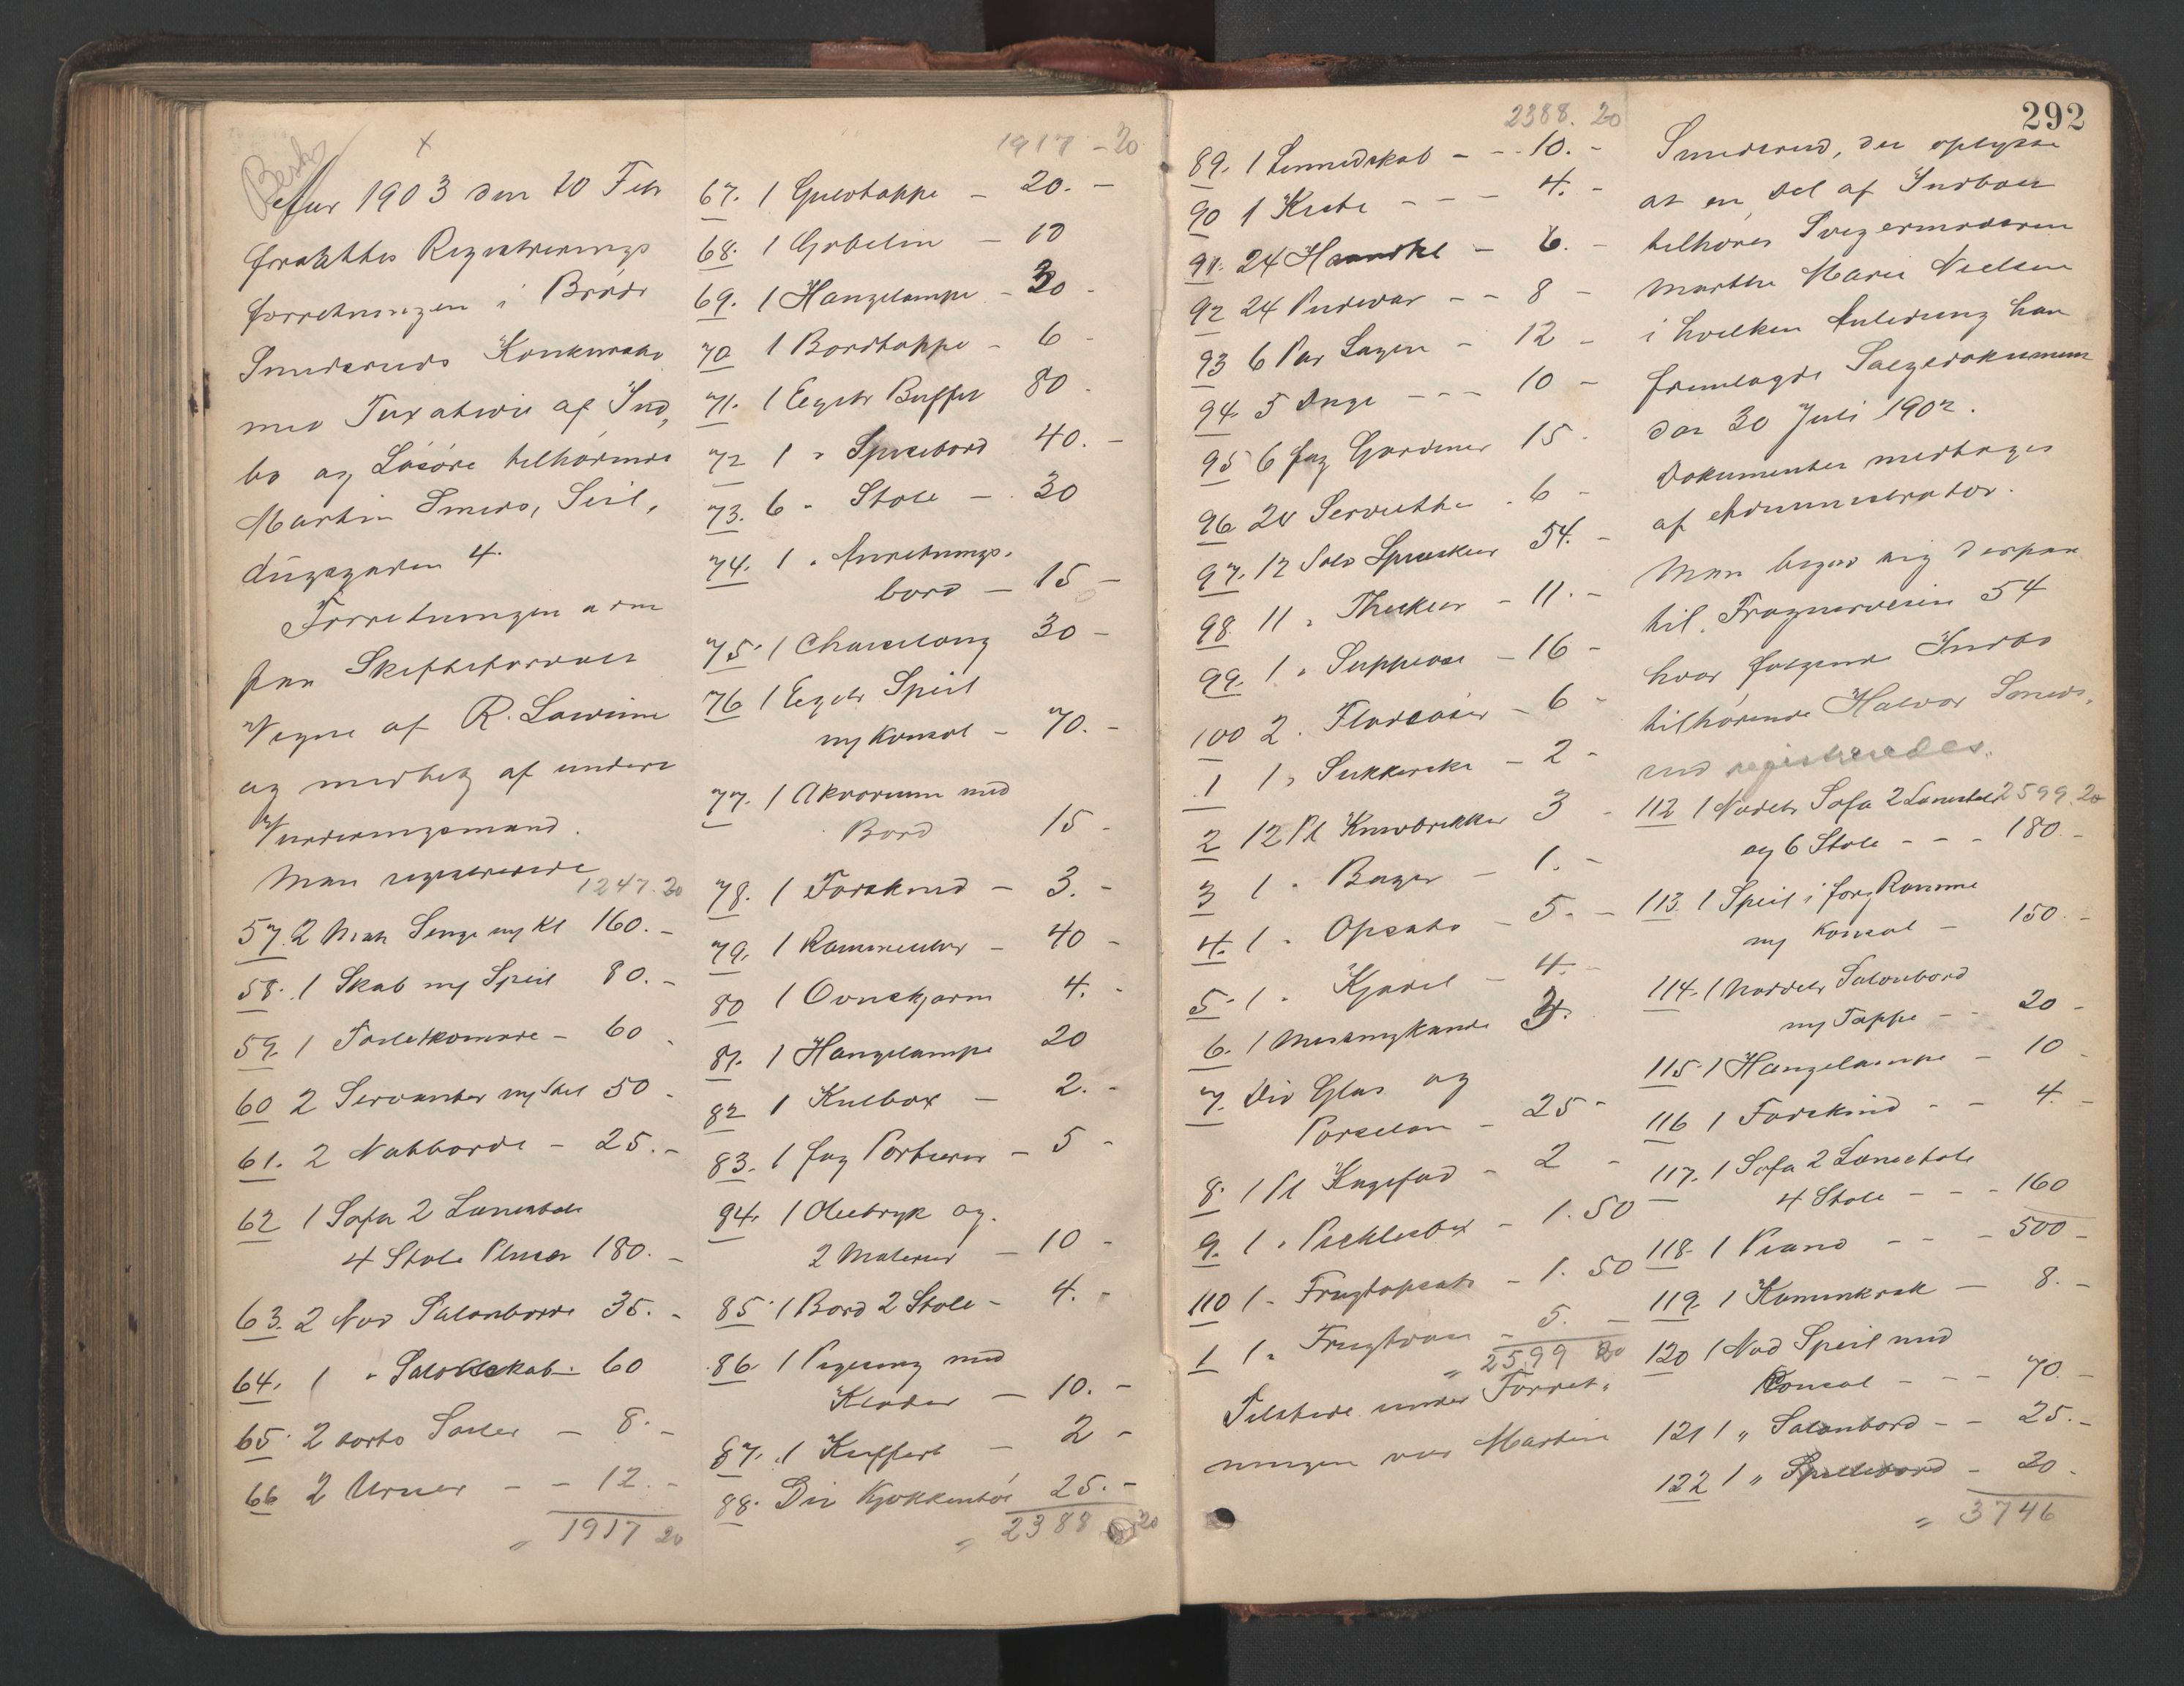 292
Besk
Aar 1903 den 20 Feb
forsattes Registrerings
forretningen i Brödr
Smeseruds Konkursbo
med Taxation af Ind,
bo og Lösöre tilhörende
Martin Smeds, Seil,
dugsgaden 4.
Forretningen adm
paa Skifteforval
Vegne af R.
og medhelp af under
Vurderingsmænd.
Man registrerede
1247.20
57. 2 Mah Senge m/ Kl 160.-
58. 1 Skab m/ Speil 80.-
59. 1 Toiletkomode - 60 -
60 2 Servanter m/ Stel 50 -
61. 2 Natborde - 25.-
62 1 Sofa 2 Lænestole
4 Stole Plusch 180.-
63. 2 Nød Salonborde 35.-
64. 1 " Salonskab - 60
65. 2 sorte Soiler - 8.-
66 2 Urner - - 12.-
= 1917 20
1917 - 20
67. 1 Gulvtæppe - 20.-
68. 1 Gobelin - 10
69. 1 Hængelampe - 30 -
70 1 Bordtæppe - 6 -
71. 1 Egetr Buffet 80 -
72 1 " Spisebord 40.-
73. 6 " Stole - 30
74. 1 " Anretnings-
bord - 15 -
75. 1 Chaiselong 30 -
76 1 Egetr Speil
m/ Konsol - 70.-
77. 1 Akvarium med
Bord 15 -
78. 1 Faraskind - 3.-
79. 1 Rammeuhr - 40 -
80 1 Ovnskjærm 4.-
81. 1 Hængelampe 20
82 1 Kulbox - 2.-
83. 1 fag Portierer - 5 -
84. 1 Oletryk og.
2 Malerier - 10 -
85. 1 Bord 2 Stole - 4.-
86. 1 Pigeseng med
Klæder - 10.-
87. 1 Kuffert - 2 -
88. Div Kjøkkentöi 25.-
= 2388 20
2388. 20
89. 1 Linnedskab - - 10.-
90 1 Kiste - - - 4.-
91. 24 Haandkl - 6.-
92 24 Pudevar - - 8 -
93 6 Par Lagen - 12 -
94. 5 Duge - - - 10 -
95 6 fag Gardiner 15 -
96 20 Servietter - 6 -
97. 12 Sölv Spiseskeer 54.-
98. 11 " Theskeer - 11.-
99. 1 " Suppeøse - 16 -
100 2 " Flødeøser - 6 -
1 1 " Sukkerske - 2 -
2 12 Pl Knivbrikker 3 -
3 1 " Bæger - 1.-
4. 1 " Opsats - 5.-
5. 1 " Kjedel - 4.-
6. 1 Messingkande 3.
7. Div Glas og
Porcelæn - 25 -
8. 1 Pl Kagefad - 2 -
9. 1 " Picklesbox - 1.50
110 1 " Frugtopsats - 1.50
1 1 " Frugtvase - 5.-
" 2599 20
Tilstede under Forret-
ningen var Martin
Smeserud, der oplyste
at en Del af Indboet
tilhører Svigermoderen
Marthe Marie Nielsen
i hvilken Anledning han
fremlagde Salgsdokument
dat 30 Juli 1902.
Dokumentet medtages
af Administrator.
Man begav sig derpaa
til Frognerveien 54
hvor følgende Indbo
tilhörende Halvor Smese,
rud registreredes.
2599.20
112 1 Nødetr Sofa 2 Lænestole
og 6 Stole - - - 180.-
113. 1 Speil i forg Ramme
m/ Konsol - 150.-
114. 1 Nøddetr Salonbord
m/ Tæppe - - 20 -
115. 1 Hængelampe - 10 -
116 1 Faraskind - - 4.-
117. 1 Sofa 2 Lænestole
4 Stole - - - 160
118. 1 Piano - - - 500 -
119. 1 Kaminkrak - 8.-
120 1 Nød Speil med
Konsol - - - 70.-
121 1 " Salonbord - - 25.-
122 1 " Spillebord - 20.-
= 3746